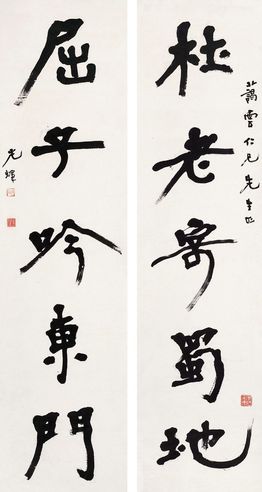 杜老寄蜀地
藹雲仁兄先生正
屈子吟東門